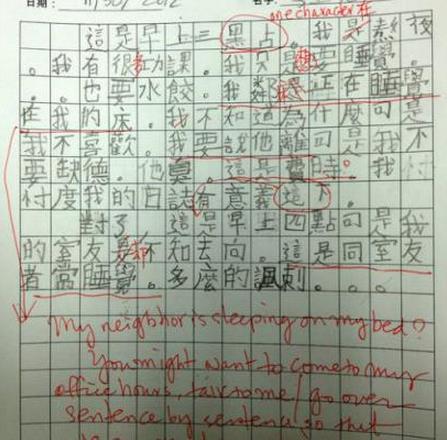 日期: 11/30/2012 名字:
one character 在
這是早上二黑占。我是熬夜
。我有很多功課。我只是想要睡覺
。也要水餃。我鄰居正在睡覺
在我的床。我不知道為什麼可是
我不喜歡。我要說他離可是我不
要缺德。他臭。這是費時。我忖
忖度我的日誌有意義這下。
對了 這是早上四點可是我
的室友是都不知去向。這是同室友
者常睡覺。多麼的諷刺。。。。
My neighbor is sleeping on my bed?
You might want to come to my
office hours, talk to me / go over
sentence by sentence so that